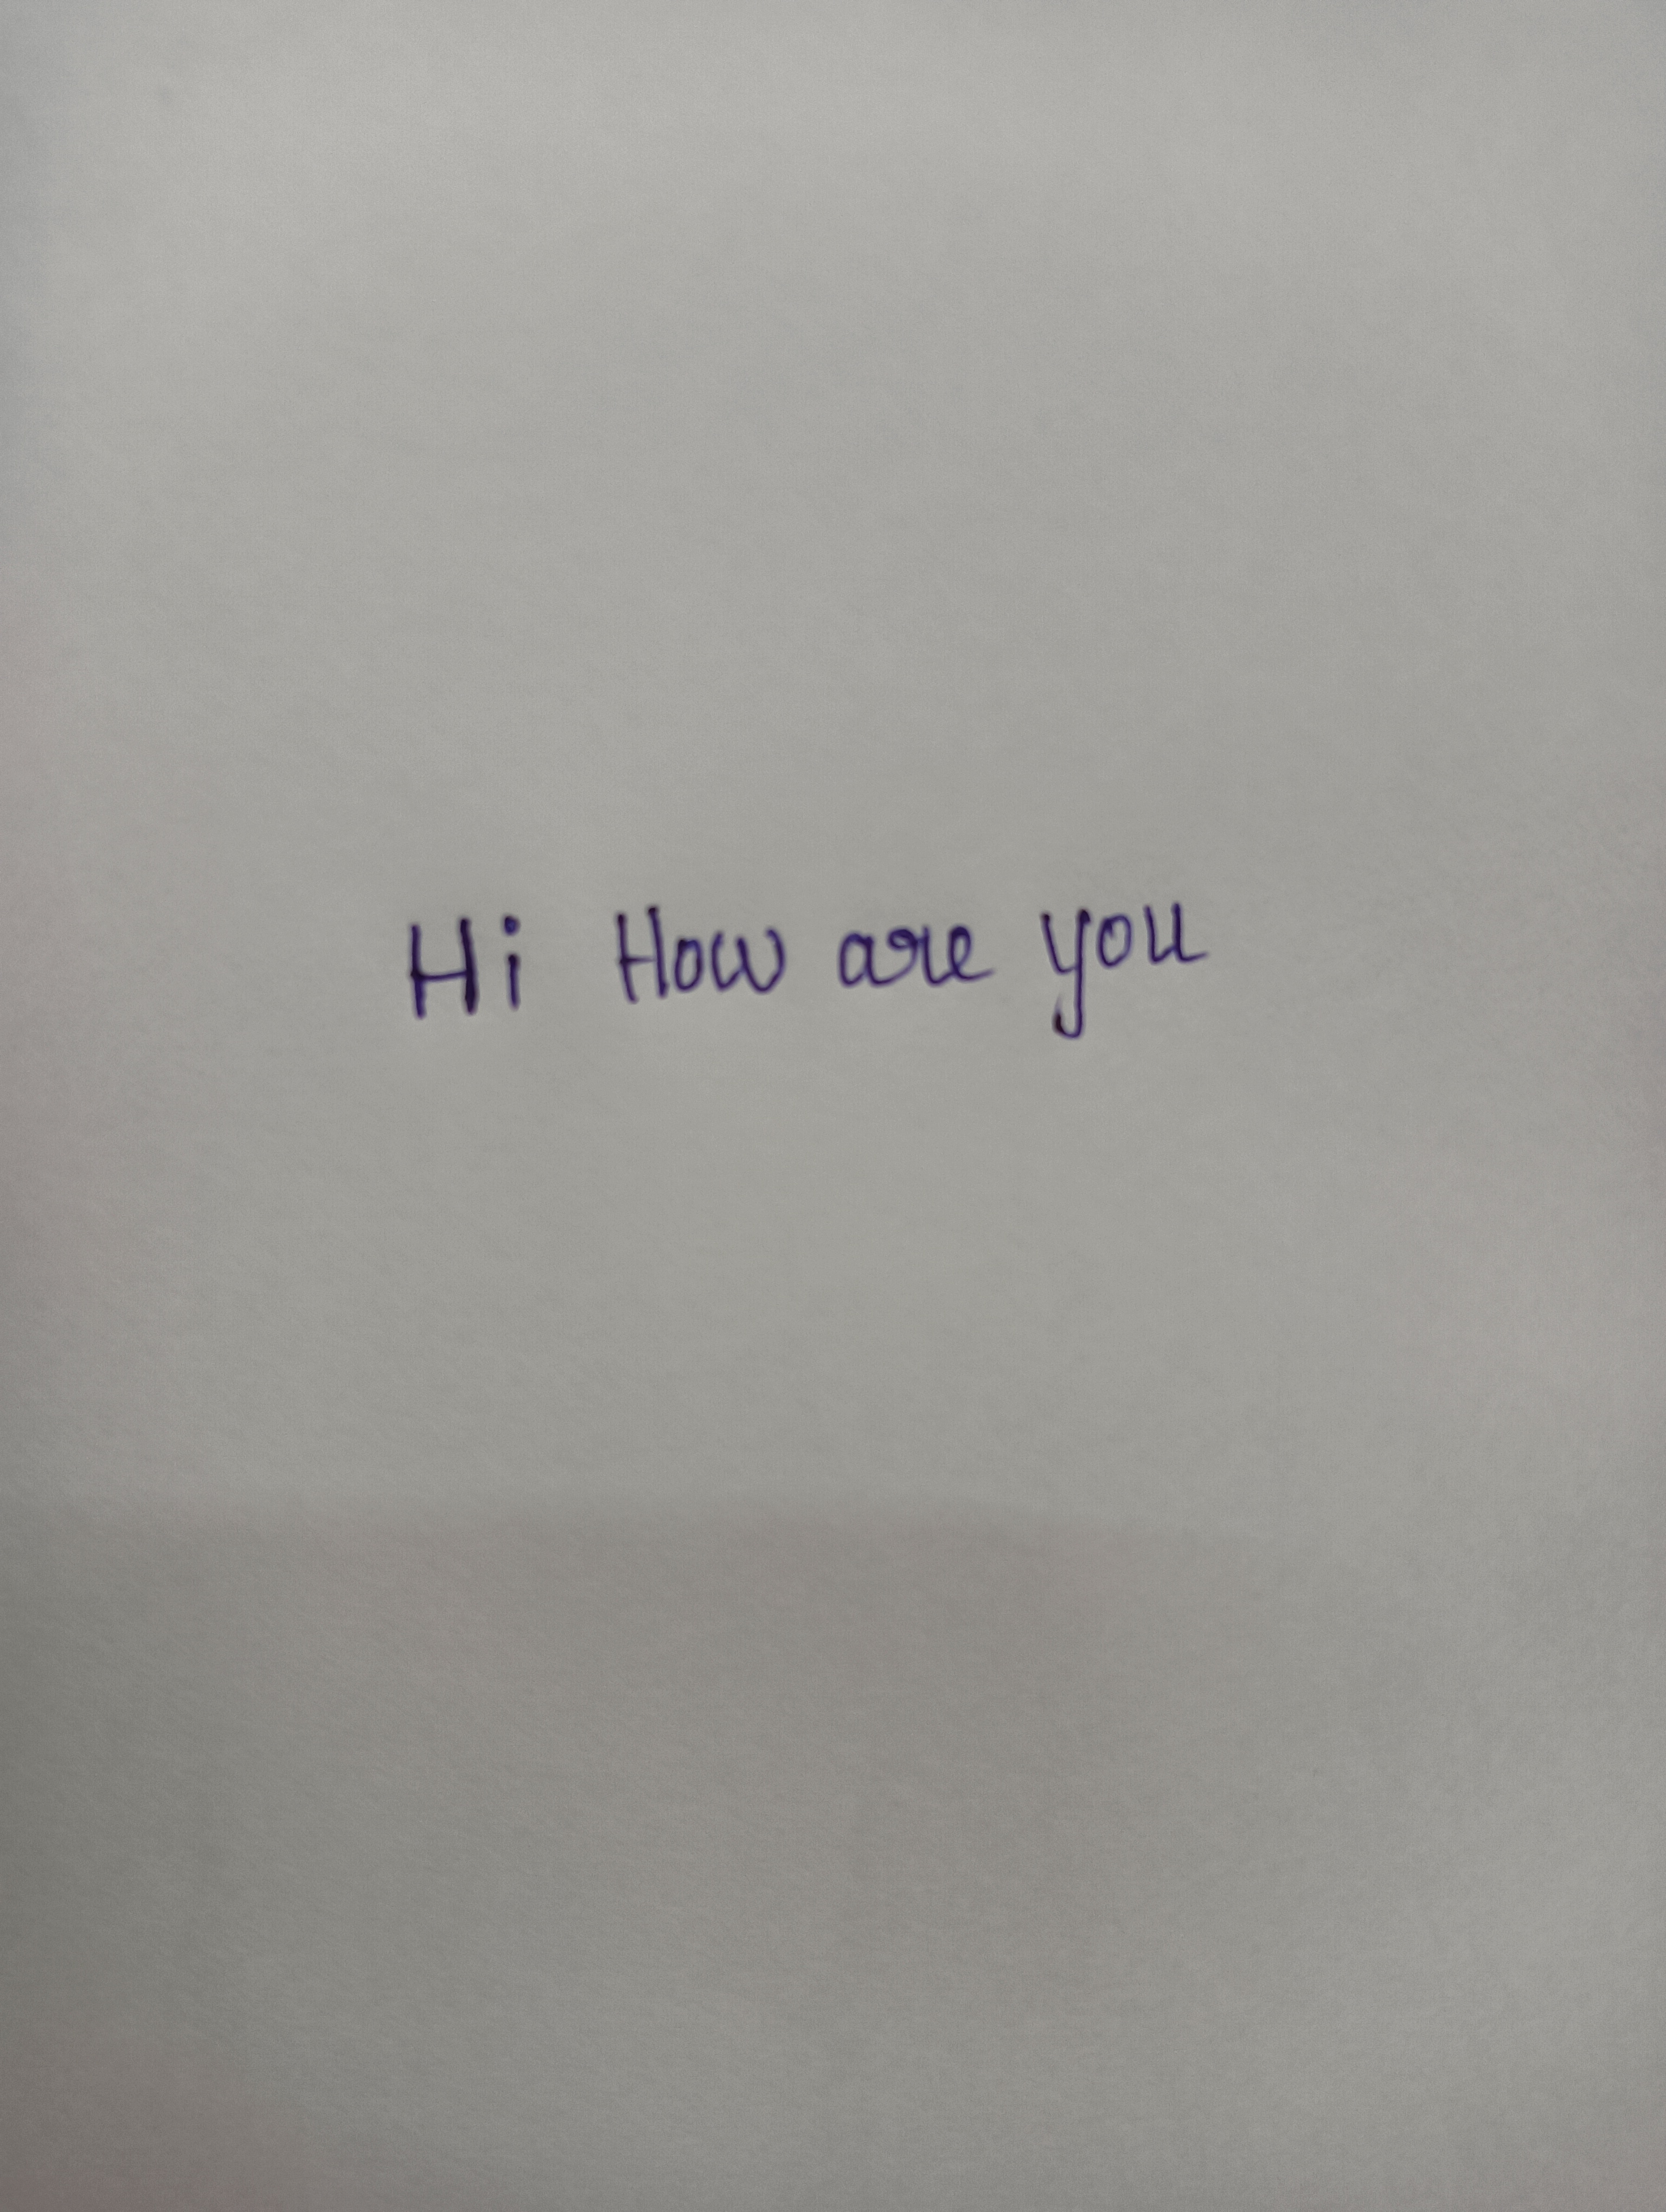 Hi How are you